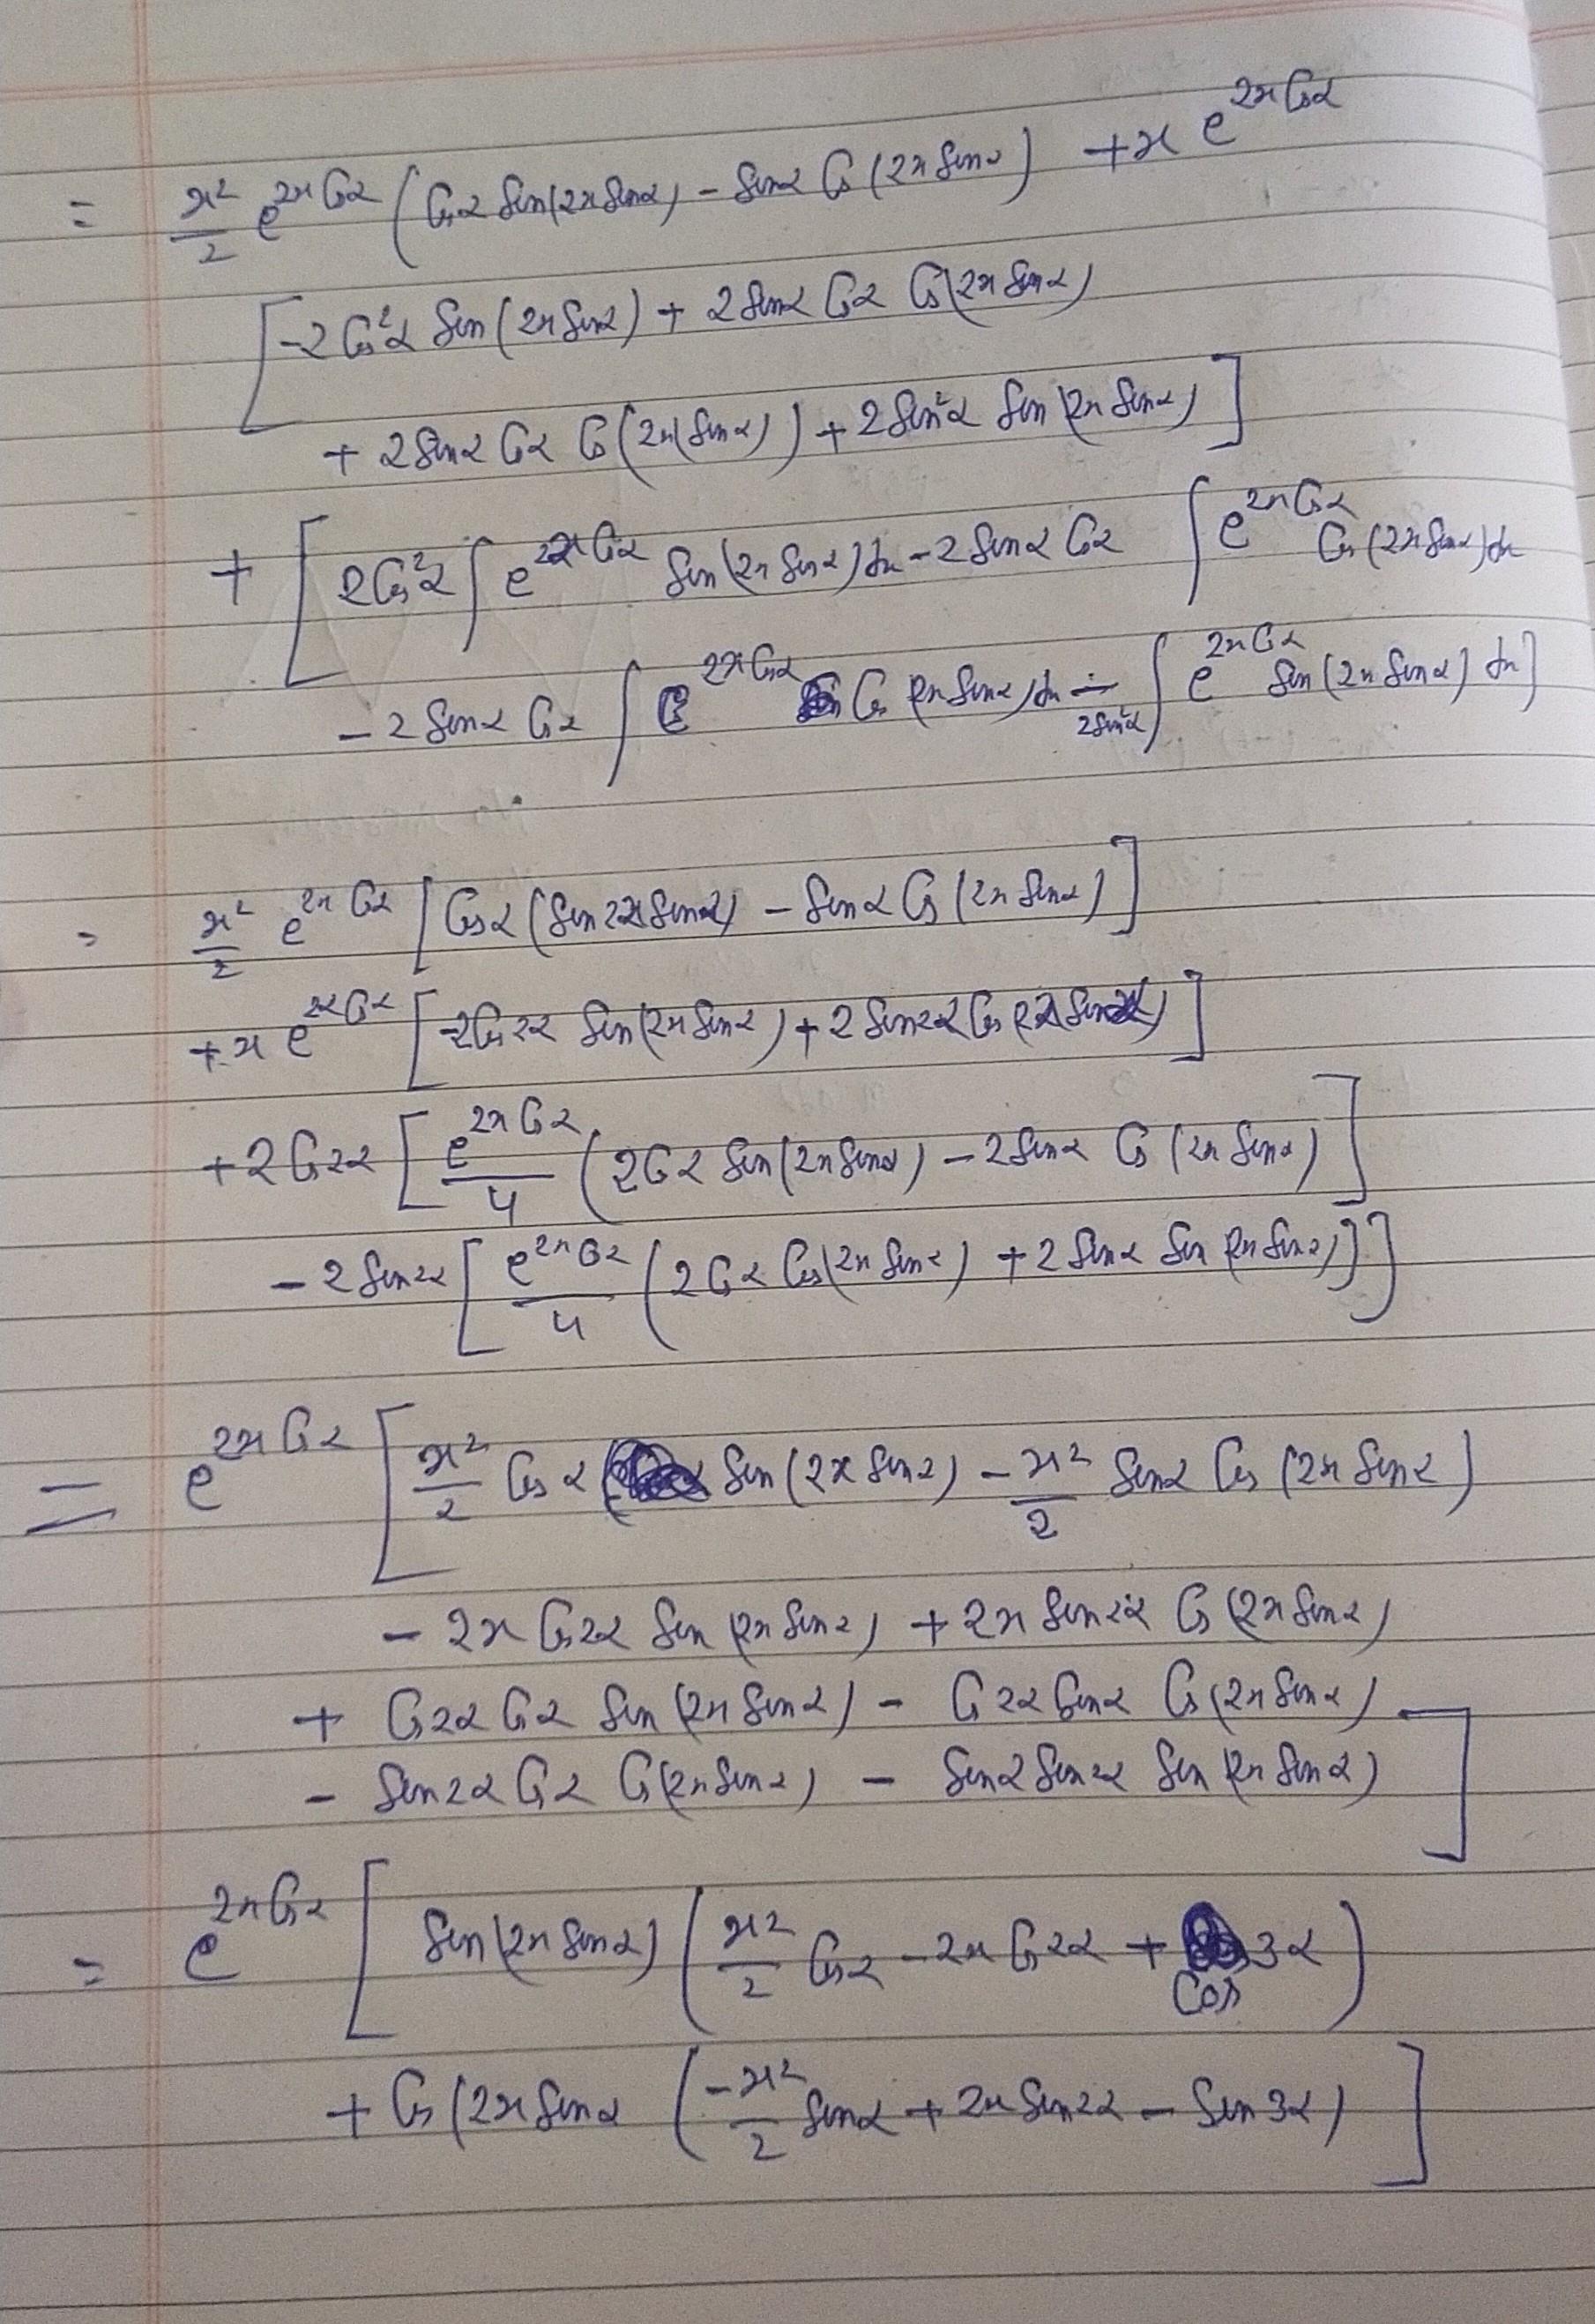 = x²/2 e^{2x Cosα} (Cosα Sin(2x Sinα) - Sinα Cos(2x Sinα)) + x e^{2x Cosα}
[-2Cos²α Sin(2x Sinα) + 2Sinα Cosα Cos(2x Sinα)
+ 2Sinα Cosα Cos(2x(Sinα)) + 2Sin²α Sin(2x Sinα)]
+ [2Cos²α ∫ e^{2x Cosα} Sin(2x Sinα)dx - 2Sinα Cosα ∫ e^{2x Cosα} Cos(2x Sinα)dx
- 2 Sinα Cosα ∫ e^{2x Cosα} Cos(2x Sinα)dx - 2Sin²α ∫ e^{2x Cosα} Sin(2x Sinα) dx]
= x²/2 e^{2x Cosα} [Cosα (Sin 2x Sinα) - Sinα Cos(2x Sinα)]
+ x e^{2x Cosα} [-2Cos2α Sin(2x Sinα) + 2 Sin2α Cos(2x Sinα)]
+ 2Cos2α [e^{2x Cosα}/4 (2Cosα Sin(2x Sinα) - 2Sinα Cos(2x Sinα)]
- 2Sin2α [e^{2x Cosα}/4 (2Cosα Cos(2x Sinα) + 2 Sinα Sin(2x Sinα)]]
= e^{2x Cosα} [x²/2 Cosα Sin(2x Sinα) - x²/2 Sinα Cos(2x Sinα)
- 2x Cos2α Sin(2x Sinα) + 2x Sin2α Cos(2x Sinα)
+ Cos2α Cosα Sin(2x Sinα) - Cos2α Sinα Cos(2x Sinα)
- Sin2α Cosα Cos(2x Sinα) - Sinα Sin2α Sin(2x Sinα)]
= e^{2x Cosα} [Sin(2x Sinα) (x²/2 Cosα - 2x Cos2α + Cos 3α)
+ Cos(2x Sinα (-x²/2 Sinα + 2x Sin2α - Sin3α)]